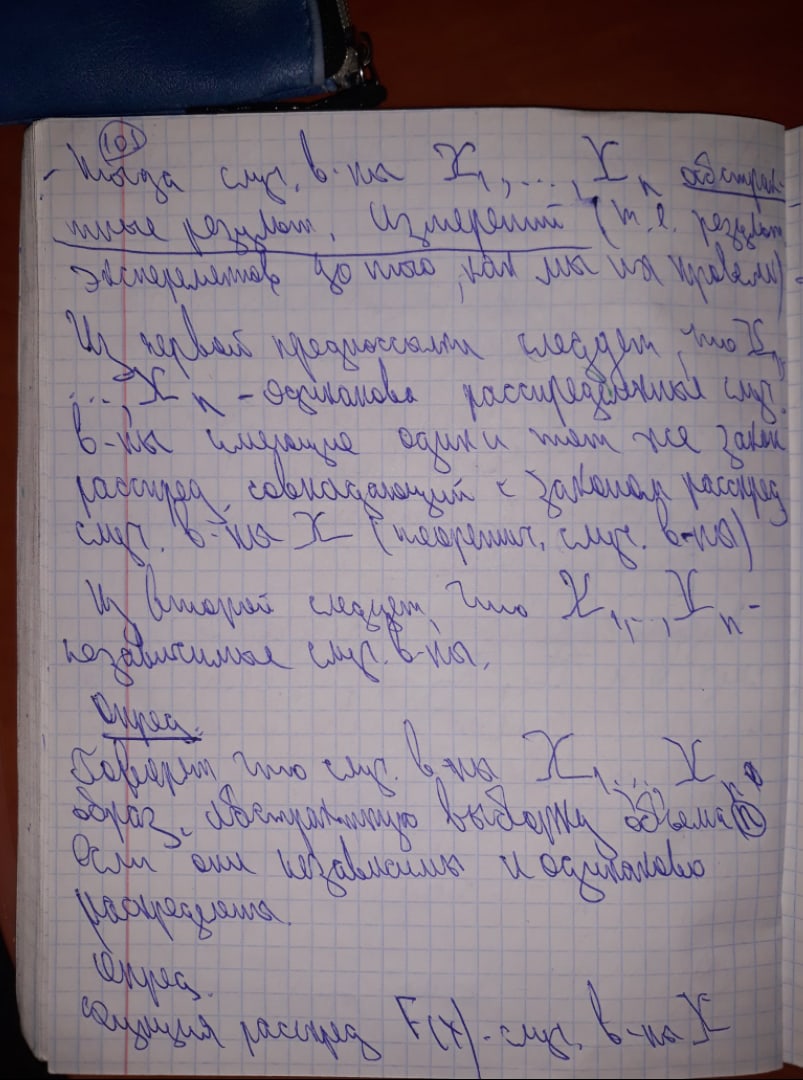 101
- Тогда случ. в-ны X₁,...,X n абстрак-
тные резулт. измерений (т.е. резулт
эксперементов до того, как мы их провели)
Из первой предпоссылки следует, что X₁,
..., X n - одинакова распределённые случ.
в-ны имеющие один и тот же закон
распред. совпадающий с законом распред
случ. в-ны X (теоретич. случ. в-ны)
Из второй следует, что X₁,..,X n -
независимые случ. в-ны.
Опред.
Говорят что случ. в-ны X₁,..., X n
образ. абстрактную выборку объема n
если они независимы и одинаково
распределена.
Опред.
Функция распред F(x) - случ. в-ны X